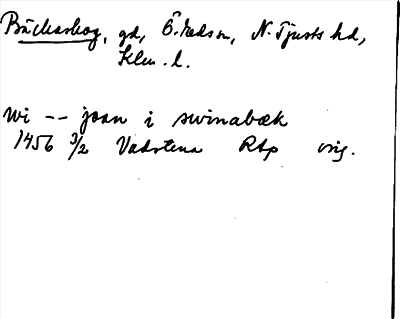 Bäckaskog, gd, Ö. Eds sn, N. Tjusts hd,
Klm. l.
wi -- joan i swinabæk
1456 3/2 Vadstena Rap orig.